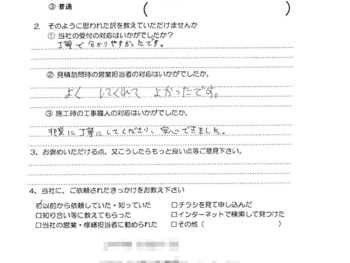 ③ 普通 (
2. そのように思われた訳を教えていただけませんか
① 当社の受付の対応はいかがでしたか?
丁寧で分かりやすかったです。
② 見積訪問時の営業担当者の対応はいかがでしたか。
よくしてくれてよかったです。
③ 施工時の工事職人の対応はいかがでしたか。
非常に丁寧にしてくださり、安心できました。
3、お褒めいただける点、又こうしたらもっと良い点等ご意見下さい。
4、当社に、ご依頼されたきっかけをお教え下さい
☑以前から依頼していた・知っていた □チラシを見て申し込んだ
□知り合い等に教えてもらった □インターネットで検索して見つけた
□当社の営業・修繕担当者に勧められた □その他 ( )